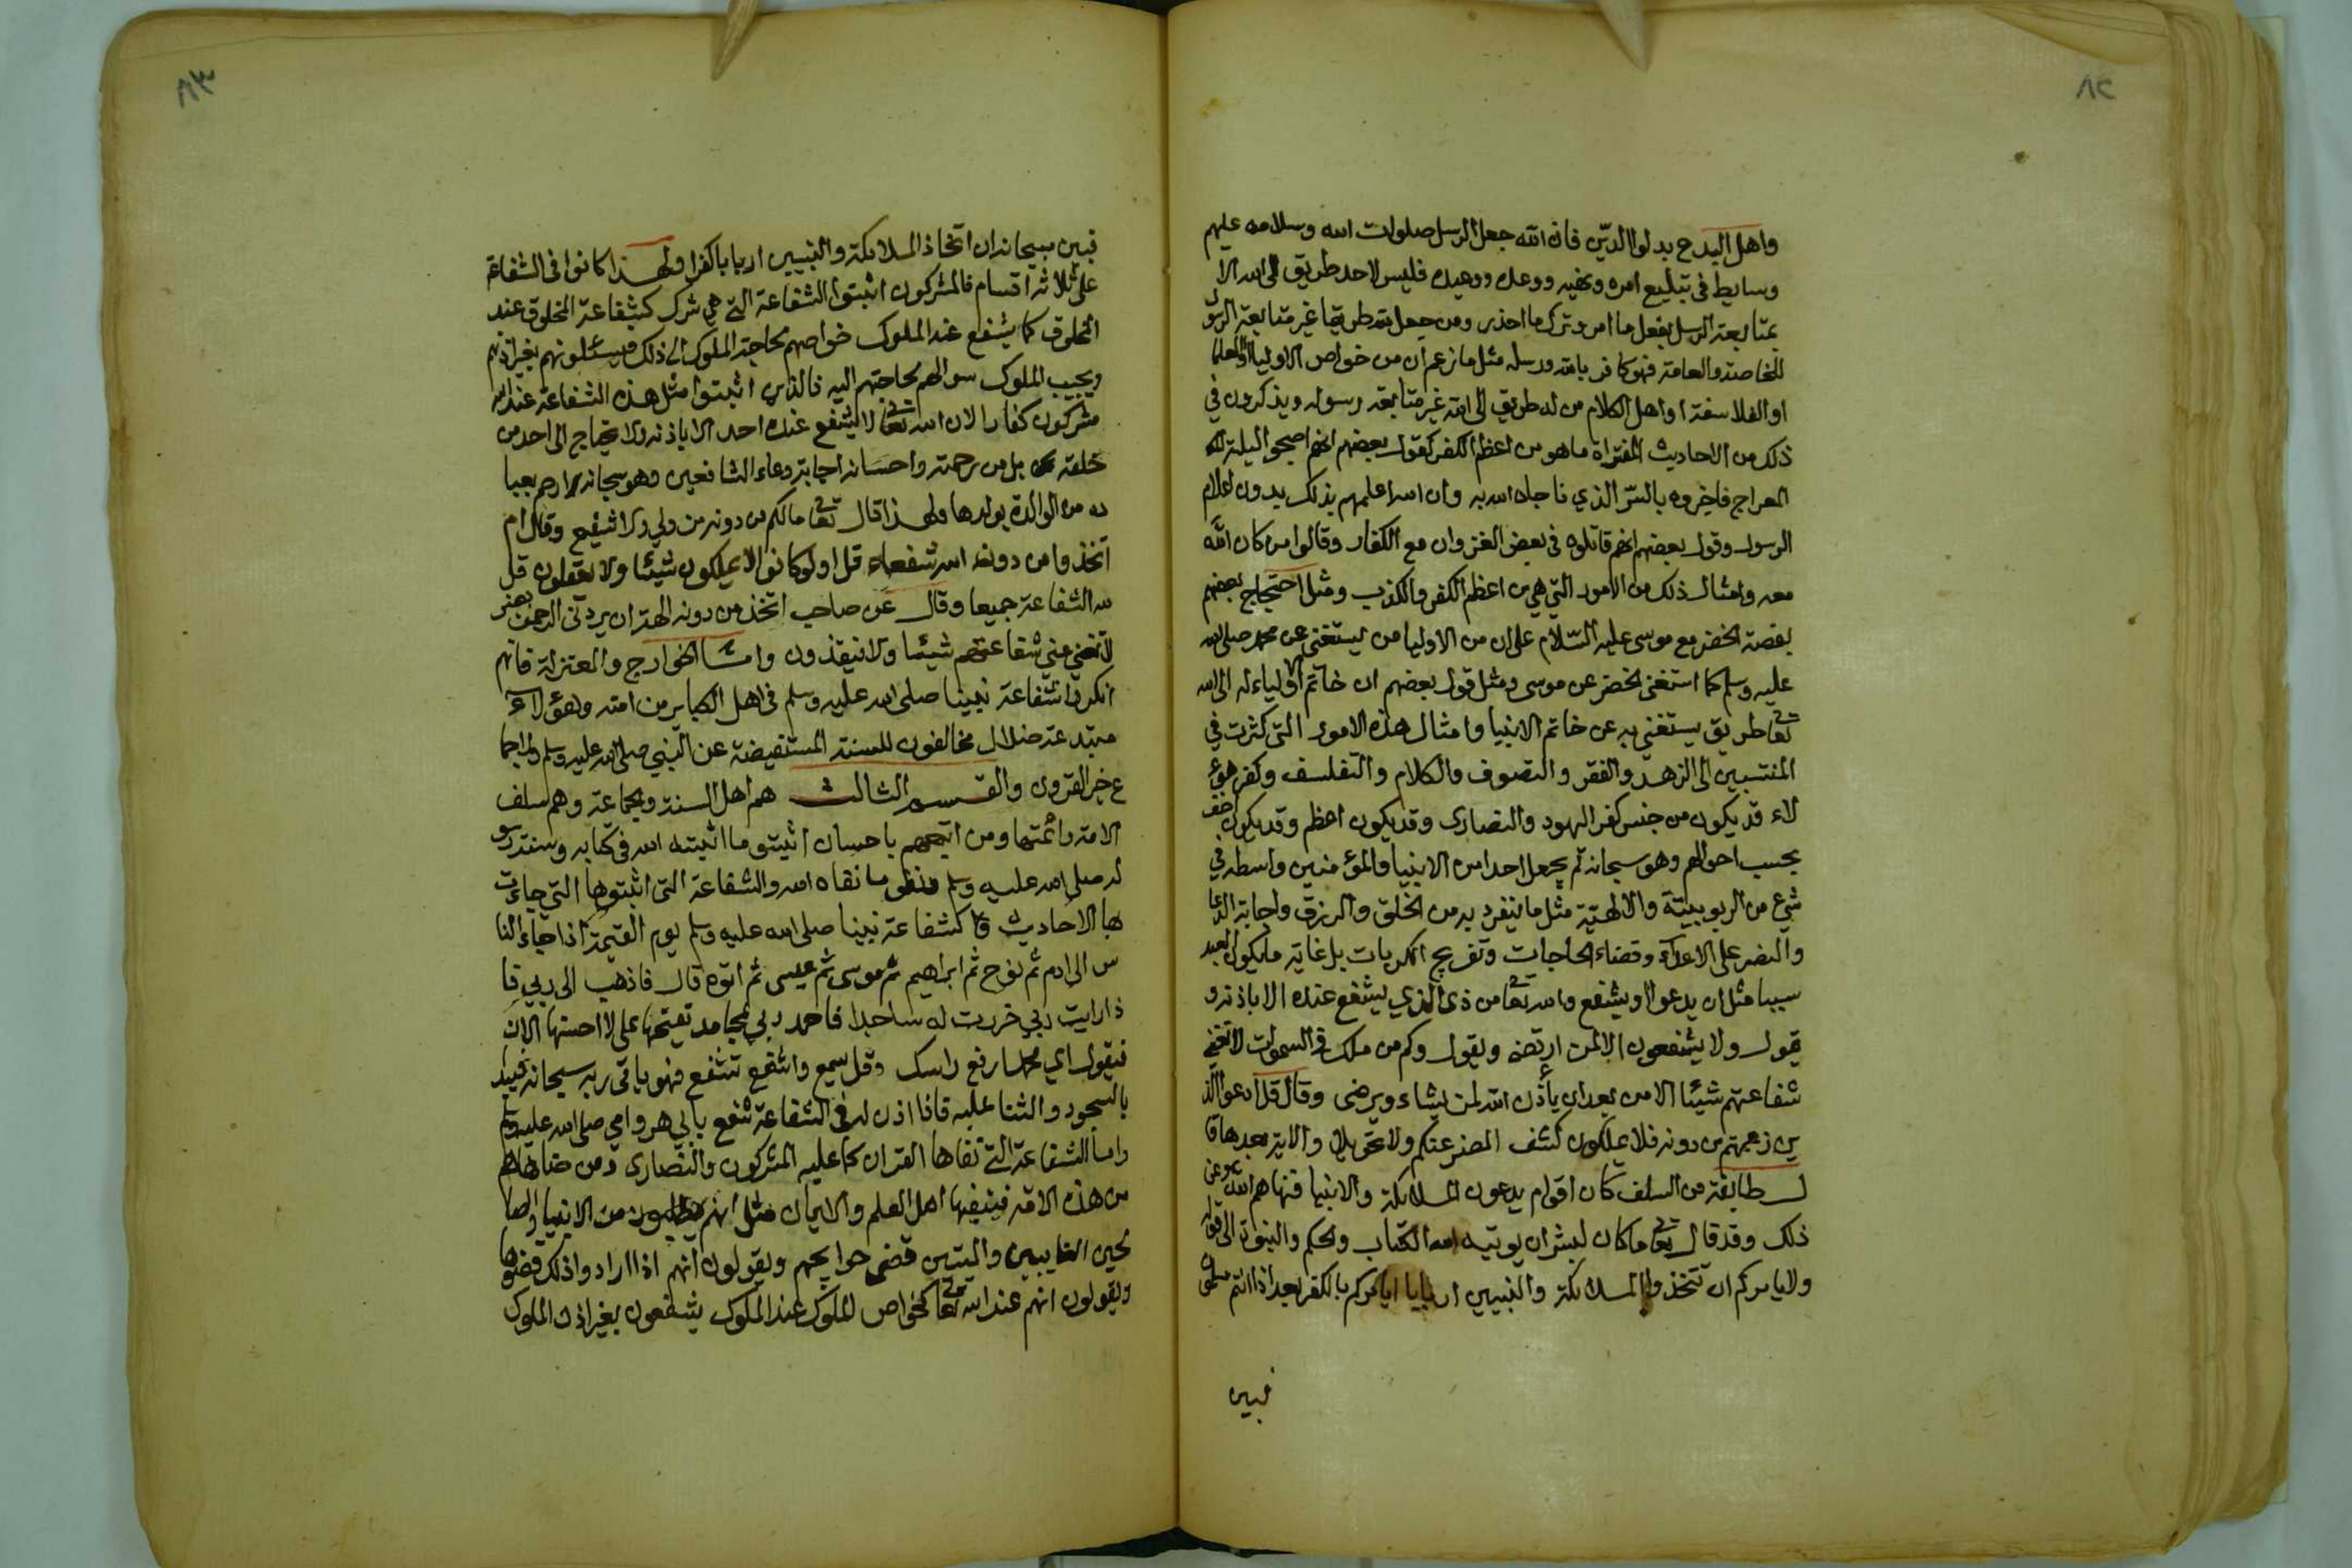 ٨٢
واهل البدع بدلوا الدين فان الله جعل الرسل صلوات الله وسلامه عليهم
وسايط في تبليغ امره ونهيه ووعده ووعيده فليس لاحد طريق الى الله الا
بمتابعة الرسل بفعل ما امر وترك ما احذر ومن جعل لله طريقا غير متابعة الرسول
للخاصة والعامة فهو كافر بالله ورسله مثل ما زعم ان من خواص الاوليا او العلما
او الفلاسفة او اهل الكلام من له طريق الى الله غير متابعة رسوله ويذكرون في
ذلك من الاحاديث المفتراة ما هو من اعظم الكفر كقول بعضهم انهم اصبحوا ليلة
المعراج فاخبروه بالسّر الذي ناجاه الله به وان الله اعلمهم بذلك بدون اعلام
الرسول وقول بعضهم انهم قاتلوه في بعض الغزوات مع الكفار وقالوا من كان الله
معه وامثال ذلك من الامور التي هي من اعظم الكفر والكذب ومثل احتجاج بعضهم
بقصة الخضر مع موسى عليه السّلام على ان من الاوليا من يستغني عن محمد صلى الله
عليه وسلم كما استغنى الخضر عن موسى ومثل قول بعضهم ان خاتم الاولياء له الى الله
تعا طريق يستغني به عن خاتم الانبيا وامثال هذه الامور التي كثرت في
المنتسبين الى الزهد والفقر والتصوف والكلام والتفلسف وكفر هؤ
لاء قد يكون من جنس كفر اليهود والنصارى وقد يكون اعظم وقد يكون اخف
بحسب احوالهم وهو سبحانه لم يجعل احدا من الانبيا والمؤمنين واسطه في
شيء من الربوبيّة والالهيّة مثل ما ينفرد به من الخلق والرزق واجابة الدعا
والنصر على الاعداء وقضاء الحاجات وتفريج الكربات بل غاية ما يكون العبد
سببا مثل ان يدعوا او يشفع والله تعا من ذى الذي يشفع عنده الا باذنه و
يقول ولا يشفعون الا لمن ارتضى ويقول وكم من ملك في السموات لا تغني
شفاعتهم شيئا الا من بعد ان يأذن الله لمن يشاء ويرضى وقال قل ادعوا الذ
ين زعمتم من دونه فلا يملكون كشف الضر عنكم ولا تحويلا والاية بعدها قا
ل طائفة من السلف كان اقوام يدعون الملائكة والانبيا فنهاهم الله عن
ذلك وقد قال تعا ما كان لبشر ان يوتيه الله الكتاب والحكم والنبوة الى قوله
ولا يامركم ان تتخذوا الملائكة والنبيين اربابا ايامركم بالكفر بعد اذ انتم مسلمون
فبين
٨٣
فبين سبحانه ان اتخاذ الملائكة والنبيين اربابا كفرا ولهذا كانوا في الشفاعة
على ثلاثه اقسام فالمشركون اثبتوا الشفاعة التي هي شرك كشفاعة المخلوق عند
المخلوق كما يشفع عند الملوك خواصهم لحاجة الملوك الى ذلك فيسئلونهم بغير اذنهم
ويجيب الملوك سوالهم لحاجتهم اليه فالذين اثبتوا مثل هذه الشفاعة عند الله
مشركون كفار لان الله تعا لا يشفع عنده احد الا باذنه ولا يحتاج الى احد من
خلقه بل من رحمته واحسانه اجابة دعاء الشافعين وهو سبحانه ارحم بعبا
ده من الوالدة بولدها ولهذا قال تعا ما لكم من دونه من ولي ولا شفيع وقال ام
اتخذوا من دون الله شفعاء قل اولو كانوا لا يملكون شيئا ولا يعقلون قل
لله الشفاعة جميعا وقال عن صاحب اتخذ من دونه الهة ان يردني الرحمن بضر
لا تغني عني شفاعتهم شيئا ولا ينقذون وامّا الخوارج والمعتزلة فانهم
انكروا شفاعة نبينا صلى الله عليه وسلم في اهل الكباير من امته وهؤلاء
مبتدعة ضلال مخالفون للسنة المستفيضة عن النبي صلى الله عليه وسلم ولاجما
ع خير القرون والقسم الثالث هم اهل السنة والجماعة وهم سلف
الامة وائمتها ومن اتبعهم باحسان اثبتوا ما اثبته الله في كتابه وسنة رسو
له صلى الله عليه وسلم ونفوا ما نفاه الله والشفاعة التي اثبتوها التي جاءت
بها الاحاديث كشفاعة نبينا صلى الله عليه وسلم يوم القيمة اذا جاء النا
س الى ادم ثم نوح ثم ابراهيم ثم موسى ثم عيسى ثم اتوه قال فاذهب الى ربي فا
ذا رايت ربي خررت له ساجدا فاحمد ربي بمحامد يفتحها علي لا احسنها الان
فيقول اي محمد ارفع راسك وقل يسمع واشفع تشفع فهو ياتي ربه سبحانه فيبدا
بالسجود والثنا عليه فاذا اذن له في الشفاعة شفع بابي هو وامي صلى الله عليه وسلم
واما الشفاعة التي نفاها القران كما عليه المشركون والنصارى ومن ضاهاهم
من هذه الامة فينفيها اهل العلم والايمان مثل انهم يطلبون من الانبيا والصا
لحين الغايبين والميتين قضى حوايجهم ويقولون انهم اذا ارادوا ذلك قضوها
ويقولون انهم عند الله تعا كخواص الملوك عند الملوك يشفعون بغير اذن الملوك